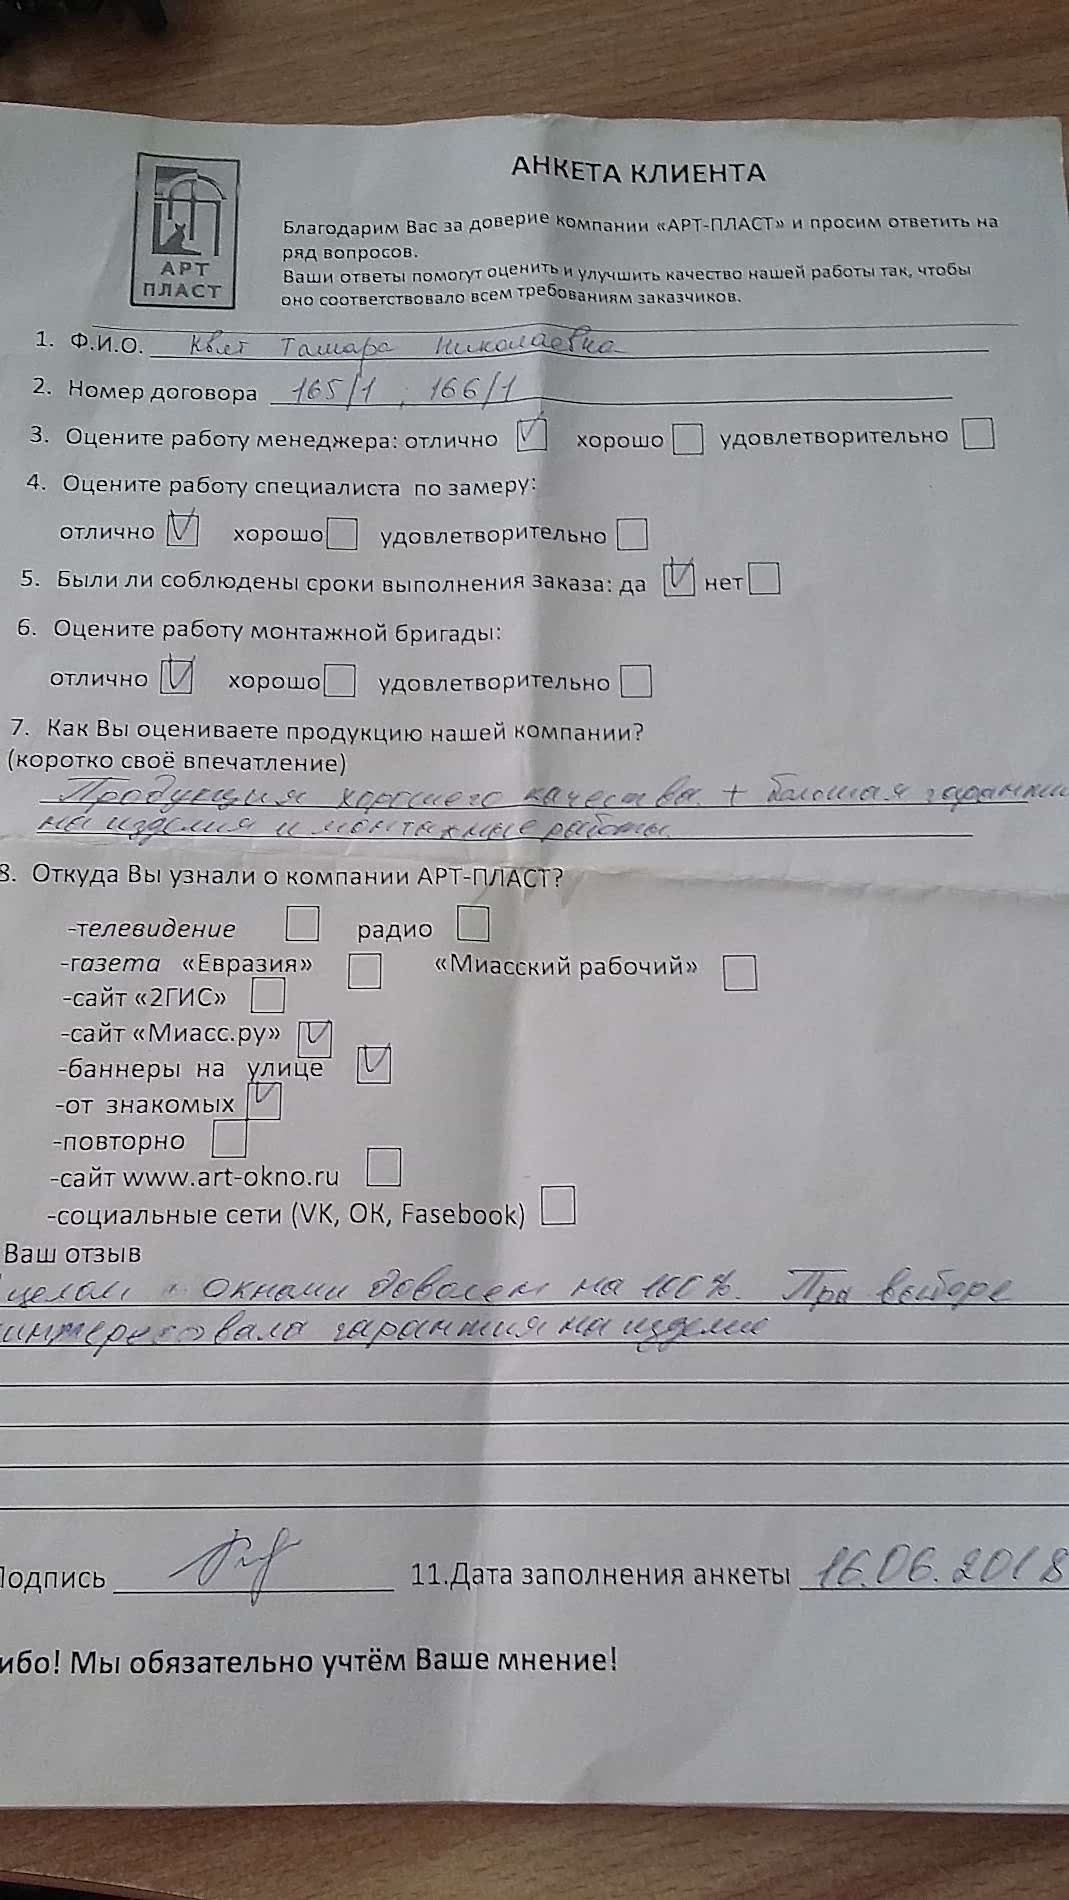 АНКЕТА КЛИЕНТА
АРТ
ПЛАСТ
Благодарим Вас за доверие компании «АРТ-ПЛАСТ» и просим ответить на
ряд вопросов.
Ваши ответы помогут оценить и улучшить качество нашей работы так, чтобы
оно соответствовало всем требованиям заказчиков.
1. Ф.И.О. Квят Тамара Николаевна
2. Номер договора 165/1, 166/1
3. Оцените работу менеджера: отлично хорошо удовлетворительно
4. Оцените работу специалиста по замеру:
отлично хорошо удовлетворительно
5. Были ли соблюдены сроки выполнения заказа: да нет
6. Оцените работу монтажной бригады:
отлично хорошо удовлетворительно
7. Как Вы оцениваете продукцию нашей компании?
(коротко своё впечатление)
Продукция хорошего качества + большая гарантия
на изделия и монтажные работы.
8. Откуда Вы узнали о компании АРТ-ПЛАСТ?
-телевидение радио
-газета «Евразия» «Миасский рабочий»
-сайт «2ГИС»
-сайт «Миасс.ру»
-баннеры на улице
-от знакомых
-повторно
-сайт www.art-okno.ru
-социальные сети (VK, OK, Fasebook)
Ваш отзыв
целом окнами доволен на 100%. При выборе
интересовала гарантия на изделие
Подпись 11.Дата заполнения анкеты 16.06.2018
ибо! Мы обязательно учтём Ваше мнение!